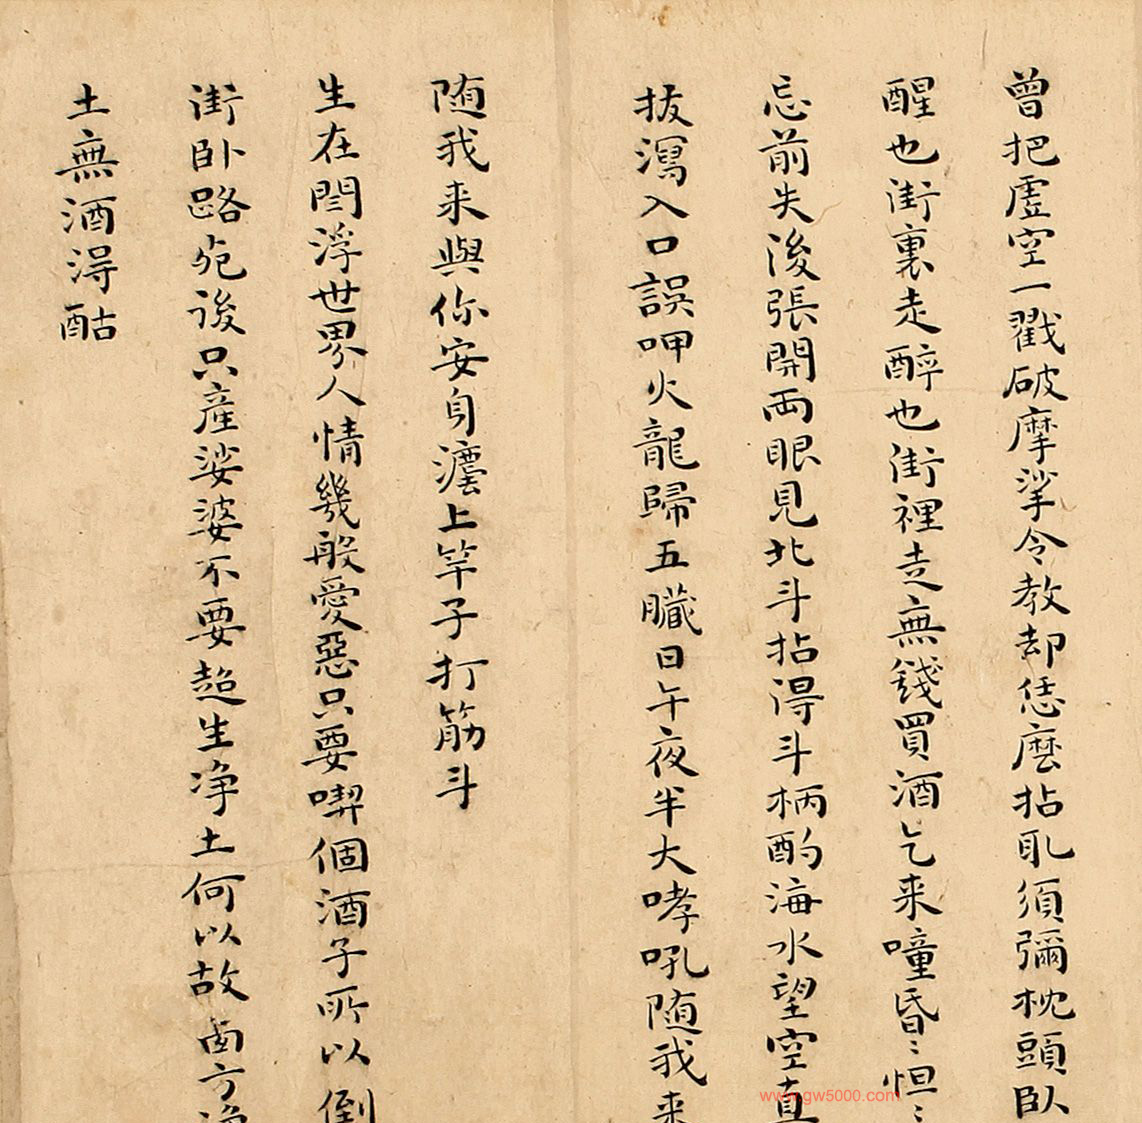 曾把虗空一戳破摩挲令教却恁麽拈耴須彌枕頭臥
醒也街裏走醉也街裡走無錢買酒乞来噇昏〻怛〻
忘前失後張開兩眼見北斗拈得斗柄酌海水望空直
拔瀉入口誤呷火龍歸五臟日午夜半大哮吼随我来
随我来與你安身上竿子打筋斗
生在閻浮世界人情幾般愛惡只要喫個酒子所以倒
街卧路死後只產娑婆不要超生净土何以故西方净
土無酒得酤
www.gw5000.com